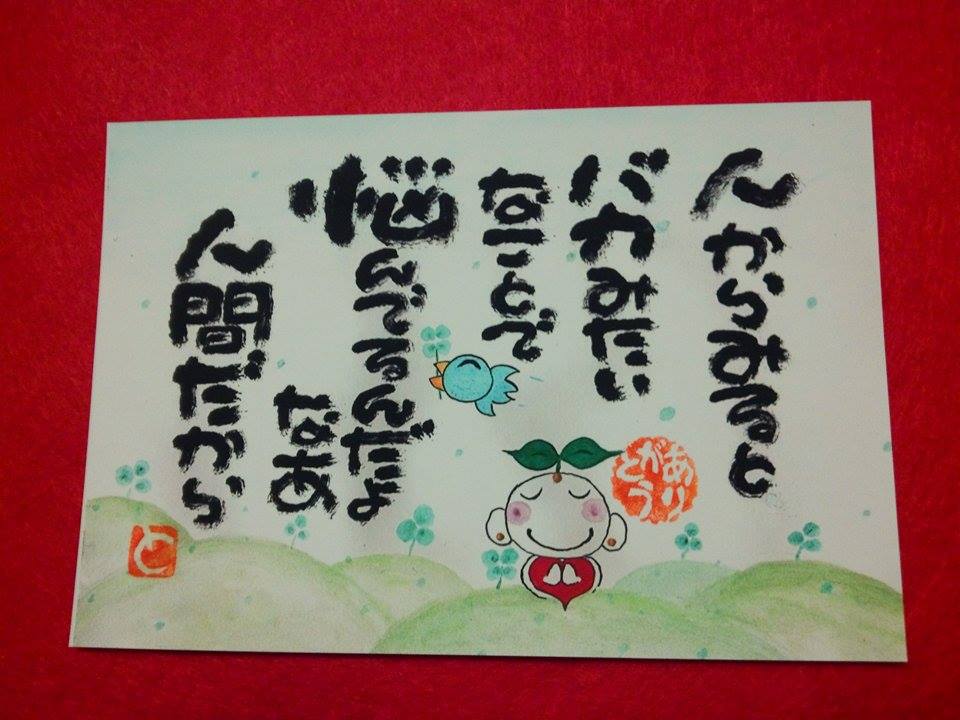 人からみると
バカみたい
なことで
悩んでるんだよ
なあ
人間だから
ありがとう
と